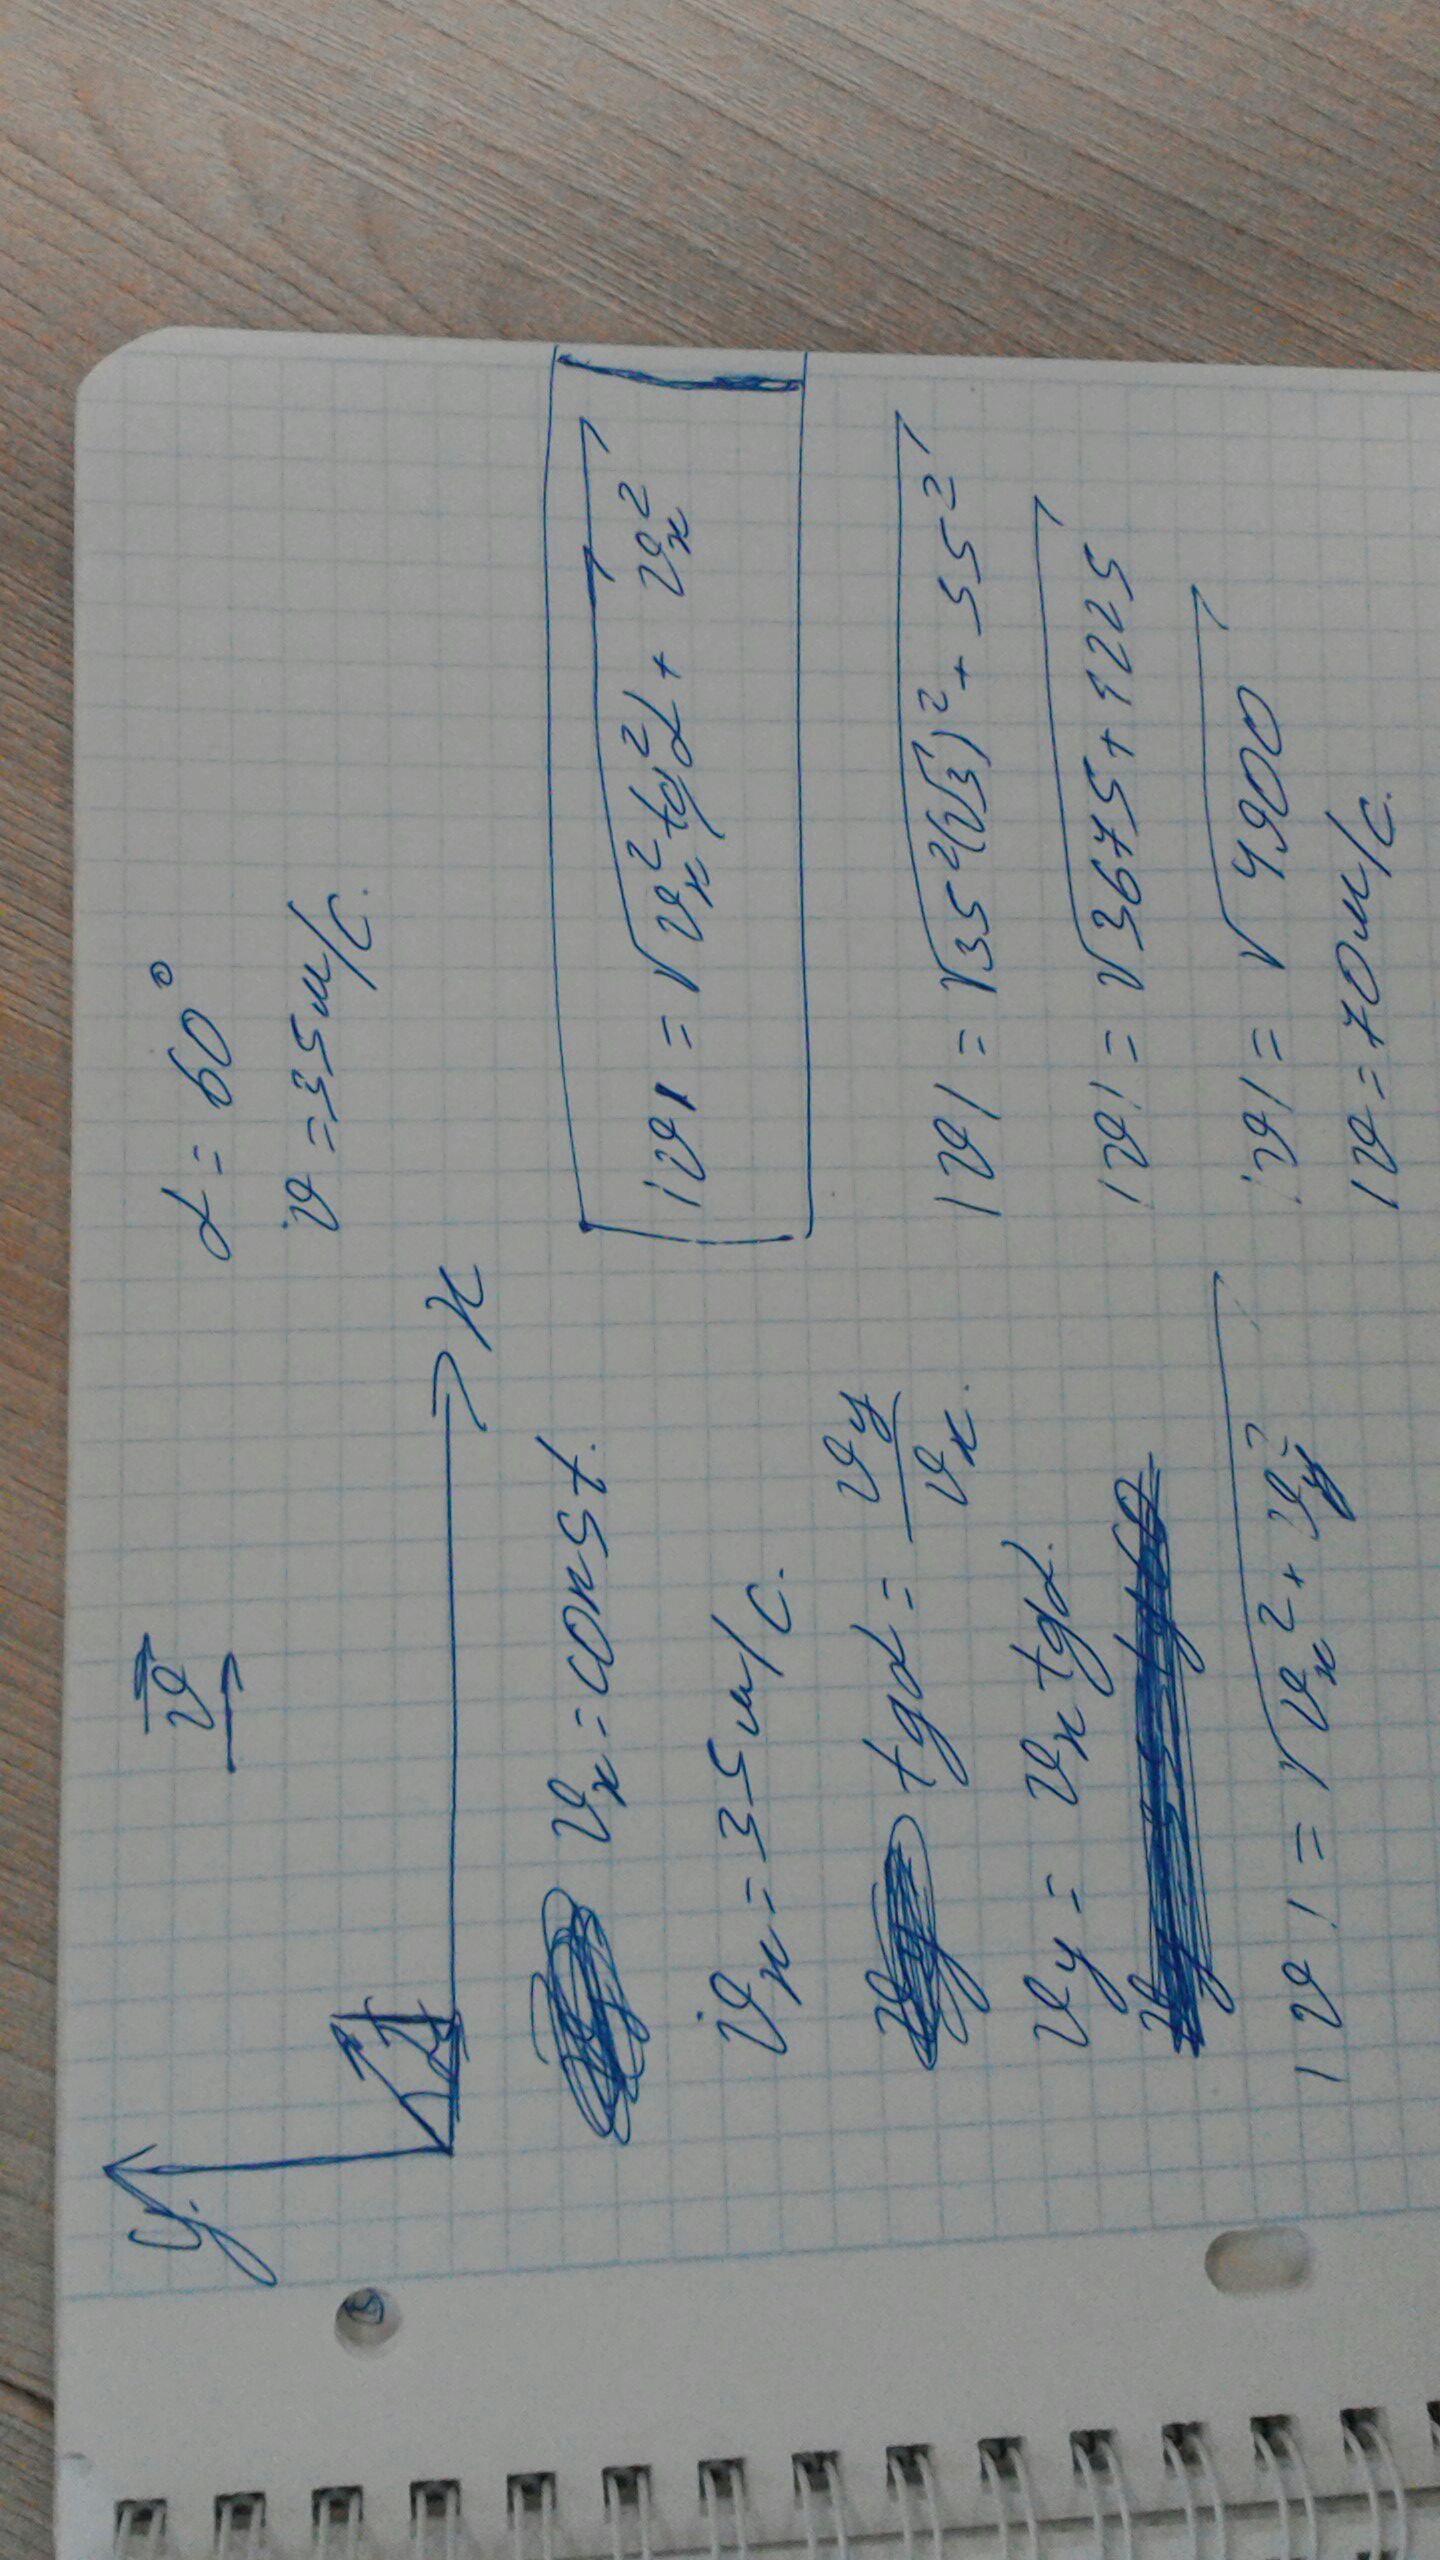 y.
x
v⃗
α = 60°
v = 35 м/с.
vₓ = const.
vₓ = 35 м/с.
tgα = v_y / vₓ.
v_y = vₓ tgα.
|v| = √(vₓ² + v_y²)
|v| = √(vₓ² tg²α + vₓ²)
|v| = √(35²(√3)² + 35²)
|v| = √(3675 + 1225)
|v| = √4900
|v = 70 м/с.